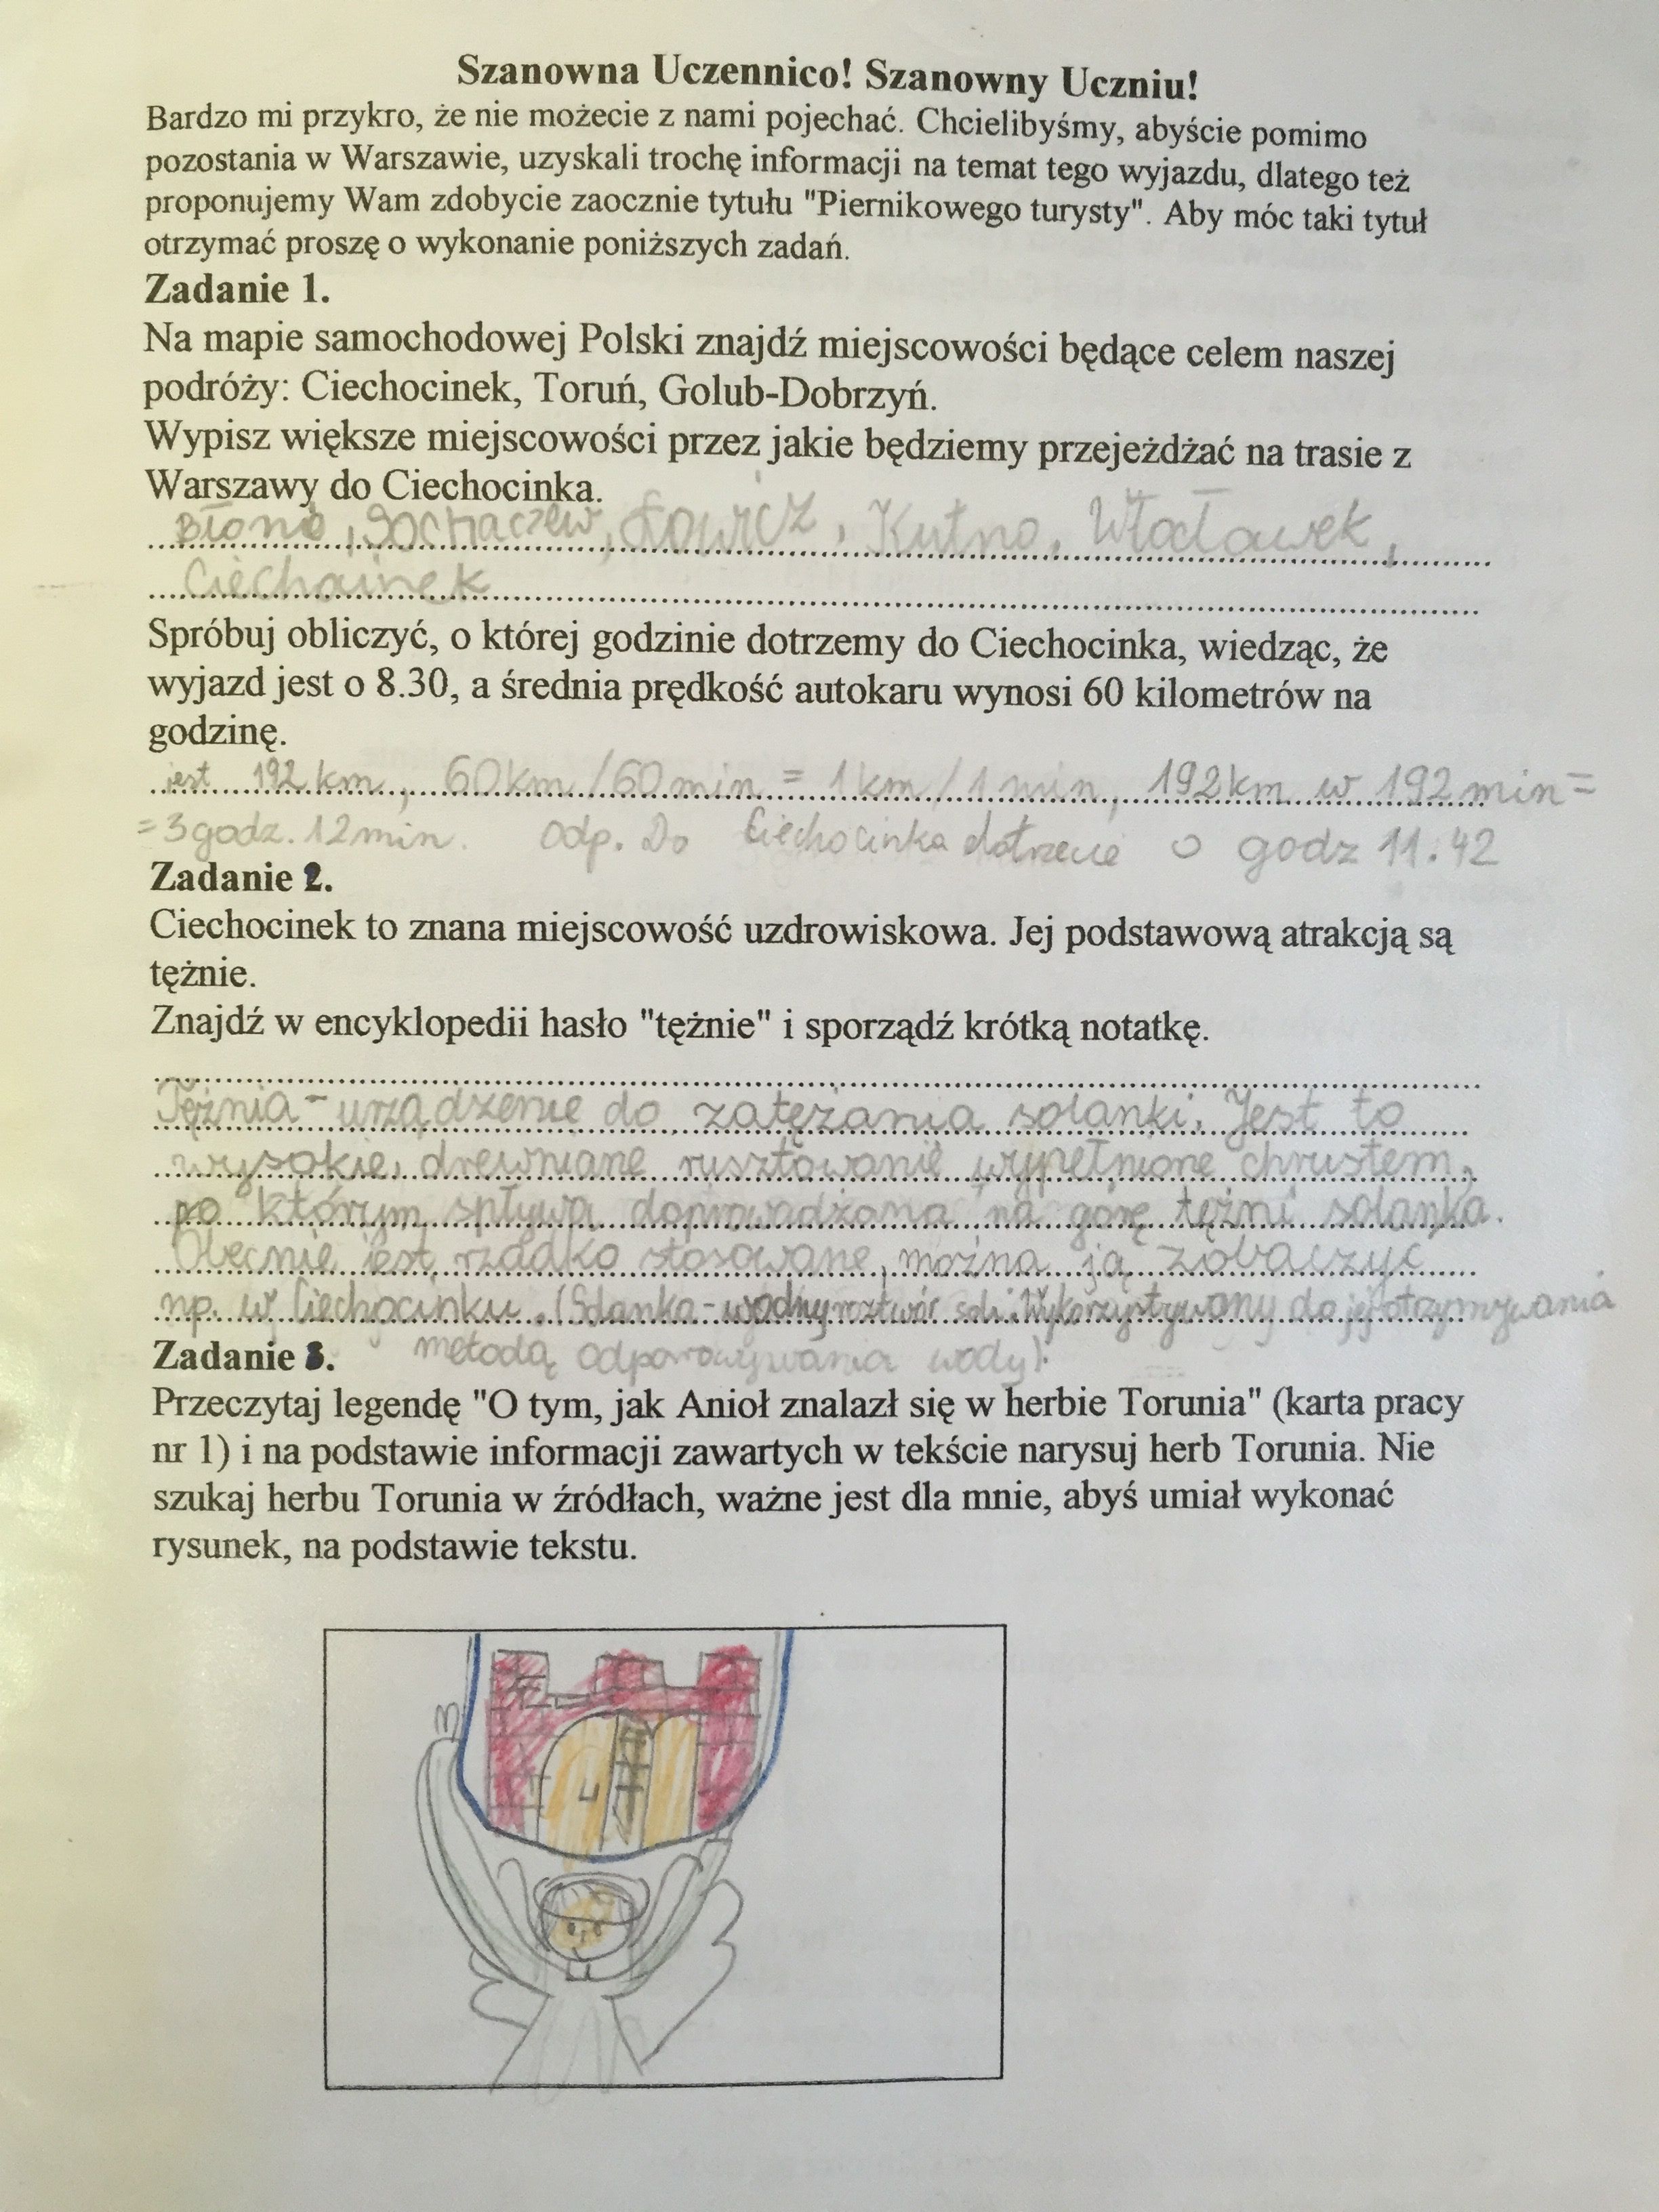 Szanowna Uczennico! Szanowny Uczniu!
Bardzo mi przykro, że nie możecie z nami pojechać. Chcielibyśmy, abyście pomimo
pozostania w Warszawie, uzyskali trochę informacji na temat tego wyjazdu, dlatego też
proponujemy Wam zdobycie zaocznie tytułu "Piernikowego turysty". Aby móc taki tytuł
otrzymać proszę o wykonanie poniższych zadań.
Zadanie 1.
Na mapie samochodowej Polski znajdź miejscowości będące celem naszej
podróży: Ciechocinek, Toruń, Golub-Dobrzyń.
Wypisz większe miejscowości przez jakie będziemy przejeżdżać na trasie z
Warszawy do Ciechocinka.
Błonie, Sochaczew, Łowicz, Kutno, Włocławek,
Ciechoinek
Spróbuj obliczyć, o której godzinie dotrzemy do Ciechocinka, wiedząc, że
wyjazd jest o 8.30, a średnia prędkość autokaru wynosi 60 kilometrów na
godzinę.
jest 192 km, 60km/60min = 1km/1min, 192km w 192min=
=3godz. 12min. Odp. Do Ciechocinka dotrzecie o godz 11.42
Zadanie 2.
Ciechocinek to znana miejscowość uzdrowiskowa. Jej podstawową atrakcją są
tężnie.
Znajdź w encyklopedii hasło "tężnie" i sporządź krótką notatkę.
Tężnia - urządzenie do zatężania solanki. Jest to
wysokie, drewniane rusztowanie wypełnione chrustem,
po którym spływa doprowadzana na górę tężni solanka.
Obecnie jest rzadko stosowane, można ją zobaczyć
np. w Ciechocinku. (Solanka - wodny roztwór soli. Wykorzystywany do jej otrzymywania
metodą odparowywania wody).
Zadanie 3.
Przeczytaj legendę "O tym, jak Anioł znalazł się w herbie Torunia" (karta pracy
nr 1) i na podstawie informacji zawartych w tekście narysuj herb Torunia. Nie
szukaj herbu Torunia w źródłach, ważne jest dla mnie, abyś umiał wykonać
rysunek, na podstawie tekstu.